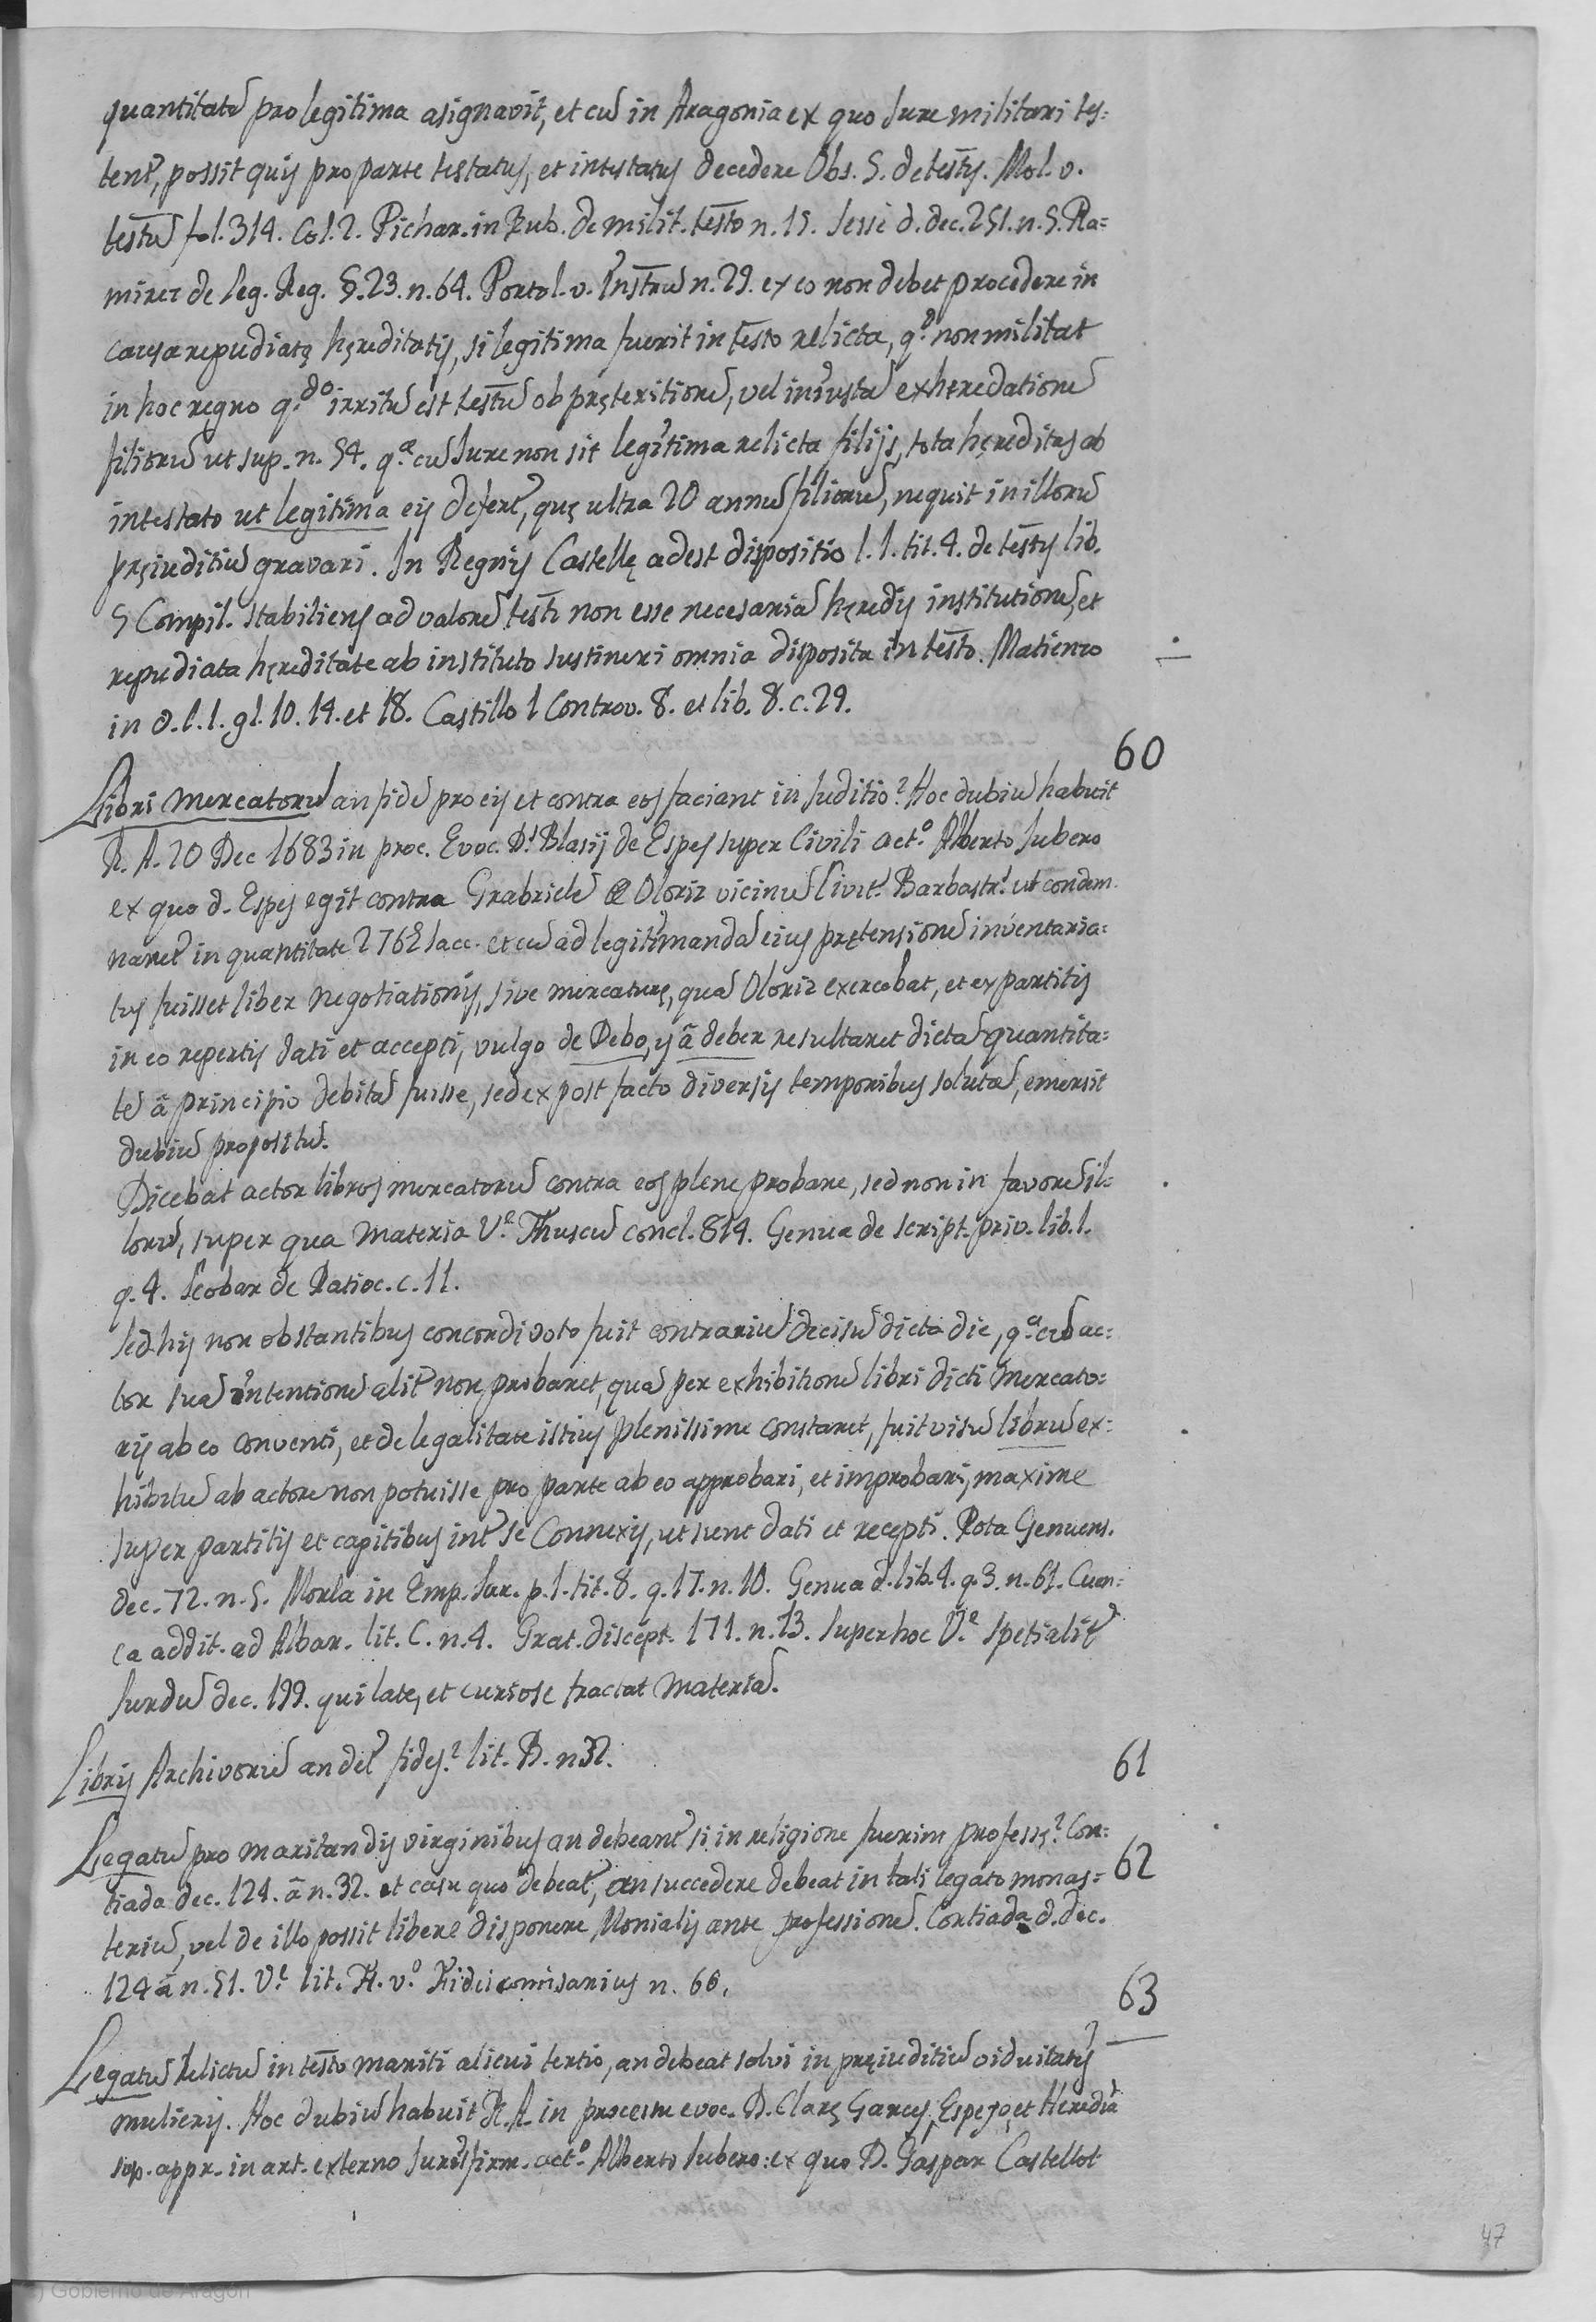 quantitatē pro legitima asignavit, et cū in Aragonia ex quo Jure militari tes=
tent, possit quis pro parte testatus, et intestatus decedere Obs. 5. de testīs. Mol. v.
testūm fol. 314. Col. 2. Pichar. in Rub. de milit. testō n. 15. Sesse d. dec. 251. n. 5. Ra=
mirez de leg. Reg. §. 23. n. 64. Portol. v. Instrūm n. 29. ex eo non debet procedere in
causa repudiatę hęreditatis, si legitima fuerit in testō relicta, q.d non militat
in hoc regno q.do irritū est testūm ob pręteritionē, vel iniustā exhęredationē
filiorū ut sup. n. 54. q.a cū Jure non sit legitima relicta filijs, tota hęreditas ab
intestato ut legitima eis defert, quę ultra 20 annū filiorū, nequit in illorū
pręiuditiū gravari. In Regnis Castellę adest dispositio l. 1. tit. 4. de testīs lib.
5 Compil. stabiliens ad valorē testī non esse necesariā hęredis institutionē, et
repudiata hęreditate ab instituto sustineri omnia disposita in testō. Matienzo
in d. l. 1. gl. 10. 14. et 18. Castillo 1 Controv. 8. et lib. 8. c. 29.
60
Libri mercatorū an fidē pro eis et contra eos faciant in Juditio? Hoc dubiū habuit
R. A. 20 Dec 1683 in proc. Evoc. D.i Blasij de Espes super Civili act.o Alberto Jubero
ex quo d. Espes egit contra Grabrielē Oloriz vicinū Civit. Barbastr. ut condem
naret in quantitate 2762 sacc. et cū ad legitimandā eius prętensionē inventaria=
tus fuisset liber negotiationis, sive mercaturę, quā Oloriz exercebat, et ex partitis
in eo repertis dati et accepti, vulgo de Debo, y ā deber resultaret dictā quantita=
tē ā principio debitā fuisse, sed ex post facto diversis temporibus solutā, emersit
dubiū propositū.
Dicebat actor libros mercatorū contra eos plene probare, sed non in favorē il=
lorū, super qua materia V.e Thuscū concl. 814. Genua de script. priv. lib. 1.
q. 4. Scobar de Ratioc. c. 11.
Sed his non obstantibus concordi voto fuit contrariū decisū dicta die, q.a cū ac=
tor suā intentionē alit non probaret, quā per exhibitionē libri dicti Mercato=
ris ab eo conventi, et de legalitate istius plenissime constaret, fuit visū librū ex=
hibitū ab actore non potuisse pro parte ab eo approbari, et improbari, maxime
super partitis et capitibus int se Connexis, ut sunt dati et recepti. Rota Genuens.
dec. 72. n. 5. Morla in Emp. Jur. p. 1. tit. 8. q. 17. n. 10. Genua d. lib. 1. q. 3. n. 61. Cuen=
ca addit. ad Albar. lit. C. n. 4. Grat. discept. 171. n. 13. Super hoc V.e spetialit
Surdū dec. 199. qui late, et curiose tractat materiā.
Libris Archivorū an det fides? lit. B. n 32.
61
Legatū pro maritandis virginibus an debeant si in religione fuerim professę? Cor=
tiada dec. 124. ā n. 32. et casu quo debeat, an succedere debeat in tali legato monas=
62
teriū, vel de illo possit libere disponere, Monialis ante professionē. Cortiada d. dec.
124 ā n. 51. V.e lit. F. v.o Fideicomisarius n. 66.
63
Legatū relictū in testō mariti alicui tertio, an debeat solvi in pręiuditiū viduitatis
mulieris. Hoc dubiū habuit R. A. in processu evoc. D. Clarę Garces, Espejo, et Heredia
sup. appr. in art. externo Juresfirm. act.o Alberto Jubero: ex quo D. Gaspar Castellot
47
(c) Gobierno de Aragón